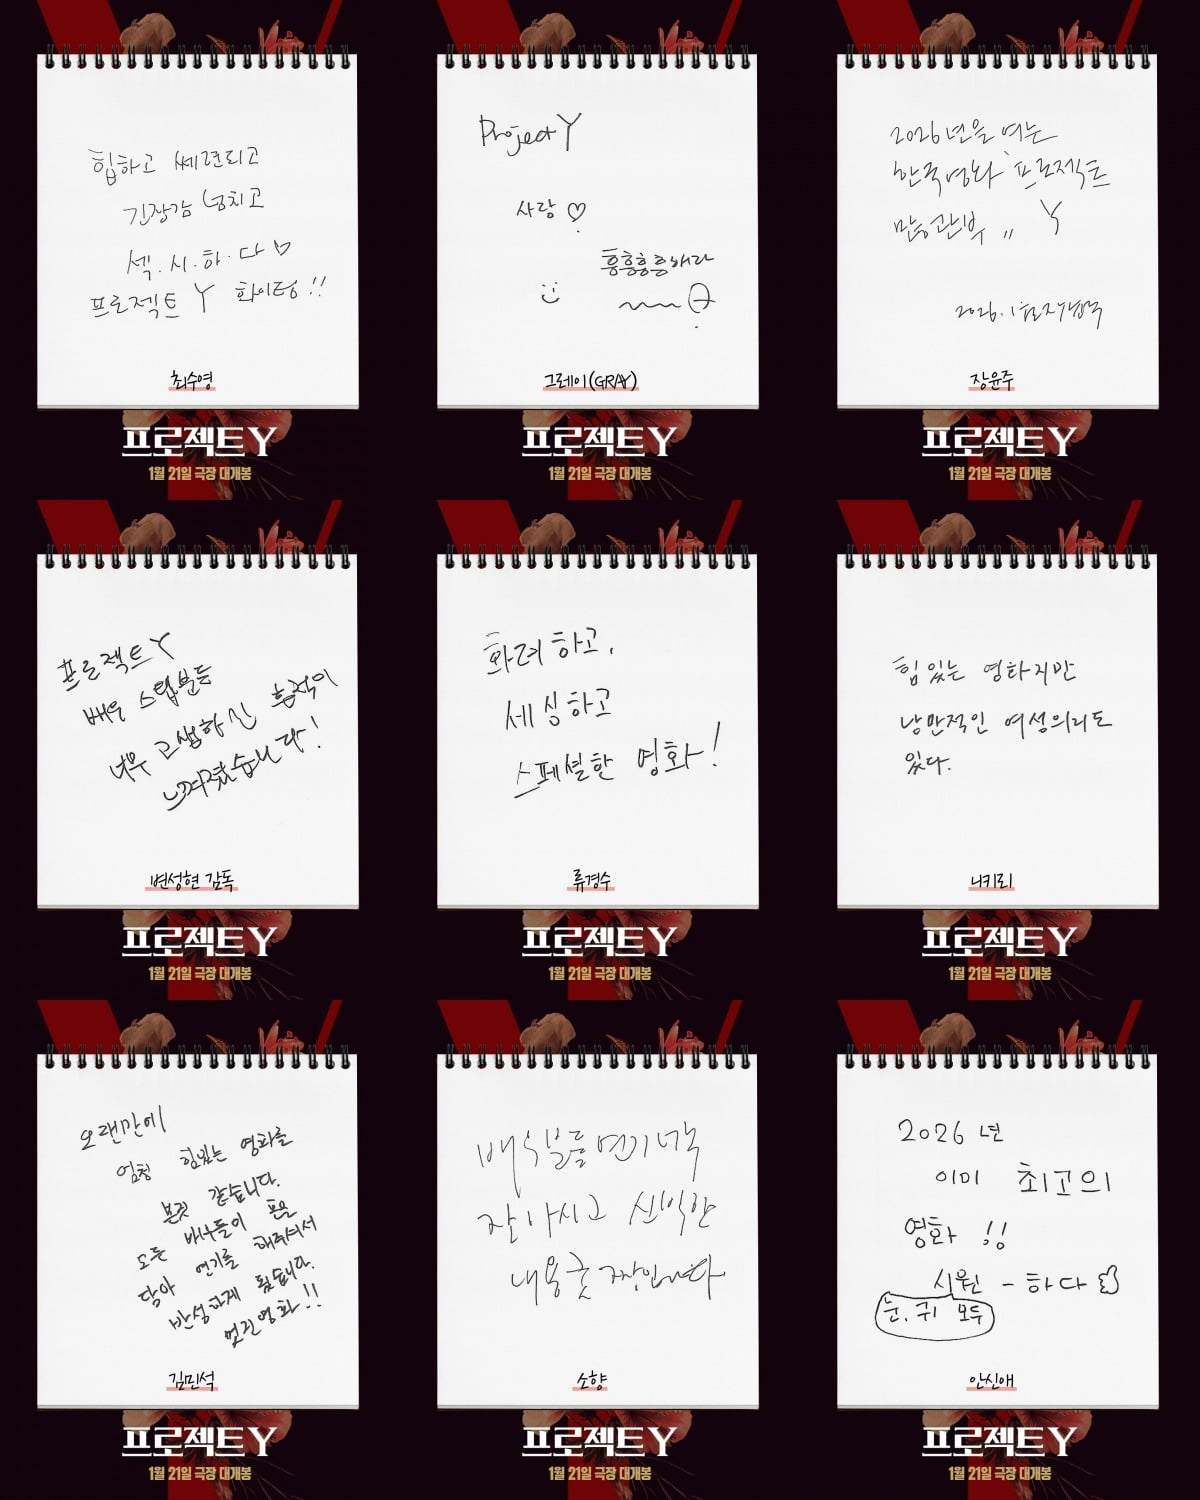 힙하고 쎄련되고
긴장감 넘치고
섹.시.하.다♡
프로젝트 Y 화이팅!!
최수영
프로젝트Y
1월 21일 극장 대개봉
Project Y
사랑♡
흥흥흥흥해라
그레이(GRAY)
프로젝트Y
1월 21일 극장 대개봉
2026년을 여는
한국영화 프로젝트
만관부,, Y
2026. 1월
장윤주
프로젝트Y
1월 21일 극장 대개봉
프로젝트Y
배우 스탭분들
너무 고생하신 흔적이
느껴졌습니다!
변성현 감독
프로젝트Y
1월 21일 극장 대개봉
화려하고,
세싱하고
스페셜한 영화!
류경수
프로젝트Y
1월 21일 극장 대개봉
힘있는 영화지만
낭만적인 여성의리도
있다.
니키리
프로젝트Y
1월 21일 극장 대개봉
오랜만에
엄청 힘있는 영화를
본것 같습니다.
모든 배우들이 혼을
담아 연기를 해주셔서
반성하게 됬습니다.
멋진영화!!
김민석
프로젝트Y
1월 21일 극장 대개봉
배우분들 연기 너무
잘하시고 신박한
내용굿 짱입니다
소향
프로젝트Y
1월 21일 극장 대개봉
2026년
이미 최고의
영화!!
시원-하다
눈.귀 모두
안신애
프로젝트Y
1월 21일 극장 대개봉